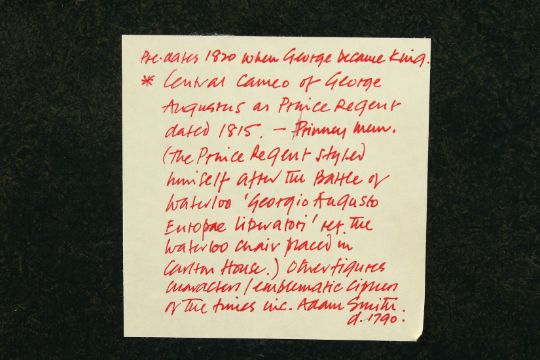 Pre-dates 1820 when George became King.
* Central Cameo of George
Augustus as Prince Regent
dated 1815. – Prinney
(The Prince Regent styled
himself after the Battle of
Waterloo 'Georgio Augusto
Europae Liberatori' ref. the
Waterloo chair placed in
Carlton House.) Other figures
characters / emblematic ciphers
of the times inc. Adam Smith
d. 1790.